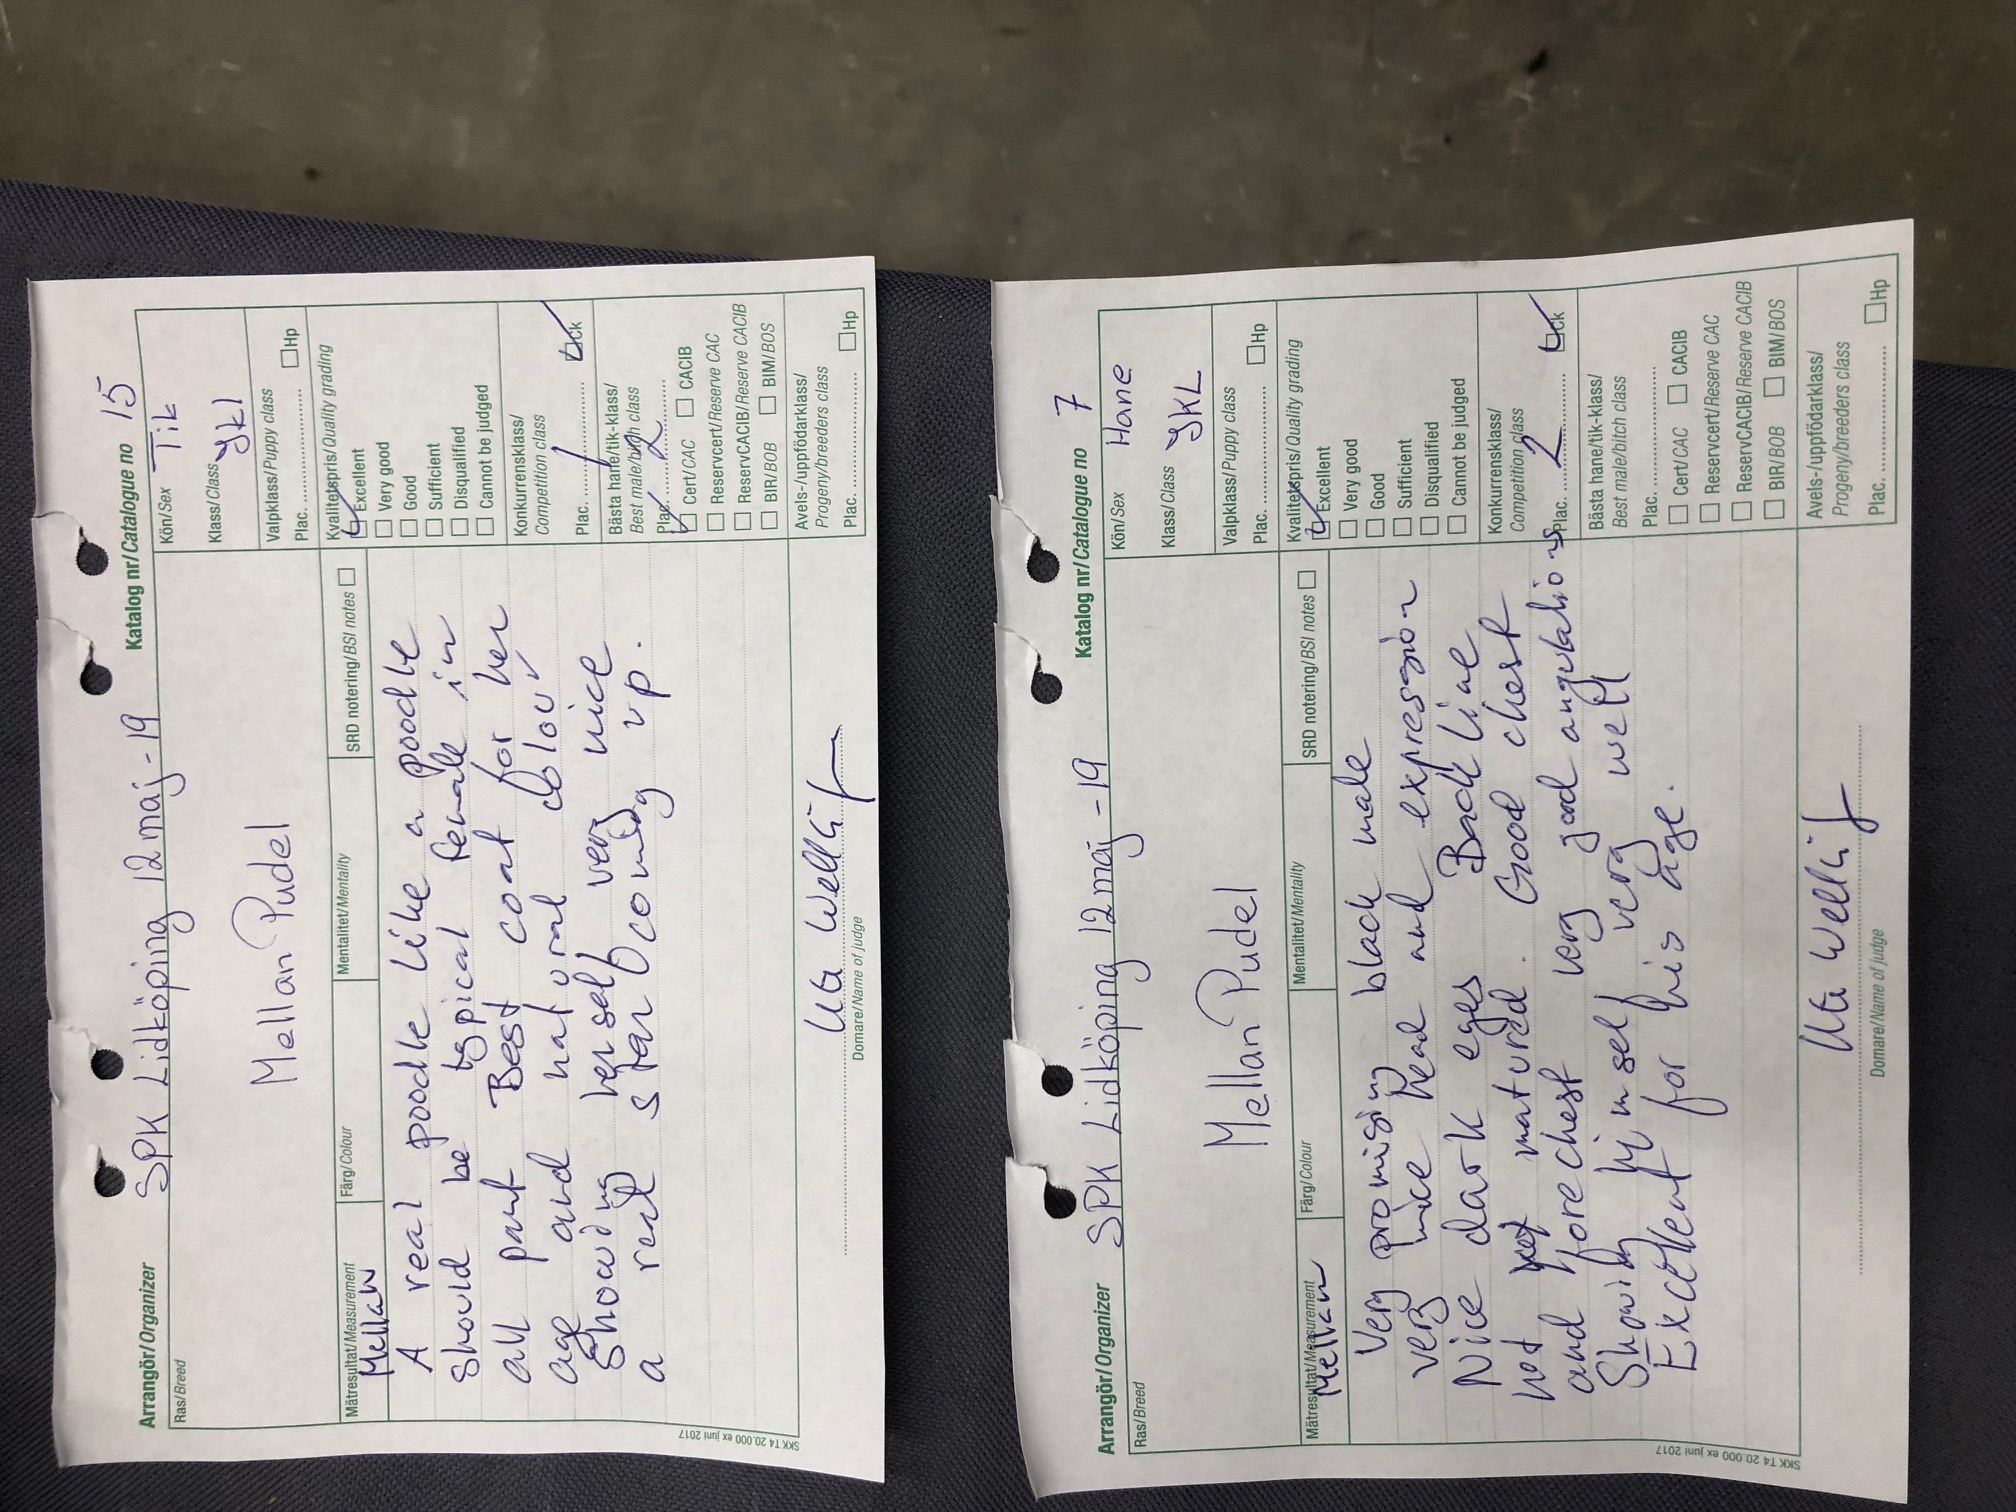 Arrangör/Organizer SPK Lidköping 12 maj -19 Katalog nr/Catalogue no 15
Ras/Breed
Mellan Pudel
Kön/Sex Tik
Klass/Class Jkl
Valpklass/Puppy class
Plac. ☐Hp
Mätresultat/Measurement Färg/Colour Mentalitet/Mentality SRD notering/BSI notes ☐
Mellan
A real poodle like a poodle
should be typical female in
all part Best coat for her
age and natural colour
Showing herself very nice
a real star coming up.
Kvalitetspris/Quality grading
Excellent
☐ Very good
☐ Good
☐ Sufficient
☐ Disqualified
☐ Cannot be judged
Konkurrensklass/
Competition class
Plac. 1 Ck
Bästa hane/tik-klass/
Best male/bitch class
Plac. 2
Cert/CAC ☐ CACIB
☐ Reservcert/Reserve CAC
☐ ReservCACIB/Reserve CACIB
☐ BIR/BOB ☐ BIM/BOS
Avels-/uppfödarklass/
Progeny/breeders class
Plac. ☐Hp
Domare/Name of judge
SKK T4 20.000 ex juni 2017
Arrangör/Organizer SPK Lidköping 12 maj -19 Katalog nr/Catalogue no 7
Ras/Breed
Mellan Pudel
Kön/Sex Hane
Klass/Class JKL
Valpklass/Puppy class
Plac. ☐Hp
Mätresultat/Measurement Färg/Colour Mentalitet/Mentality SRD notering/BSI notes ☐
Mellan
Very promising black male
very nice head and expression
Nice dark eyes Back line
not yet matured. Good chest
and forechest very good angulations
Showing himself very well
Excellent for his age.
Kvalitetspris/Quality grading
Excellent
☐ Very good
☐ Good
☐ Sufficient
☐ Disqualified
☐ Cannot be judged
Konkurrensklass/
Competition class
Plac. 2 Ck
Bästa hane/tik-klass/
Best male/bitch class
Plac.
☐ Cert/CAC ☐ CACIB
☐ Reservcert/Reserve CAC
☐ ReservCACIB/Reserve CACIB
☐ BIR/BOB ☐ BIM/BOS
Avels-/uppfödarklass/
Progeny/breeders class
Plac. ☐Hp
Domare/Name of judge
SKK T4 20.000 ex juni 2017